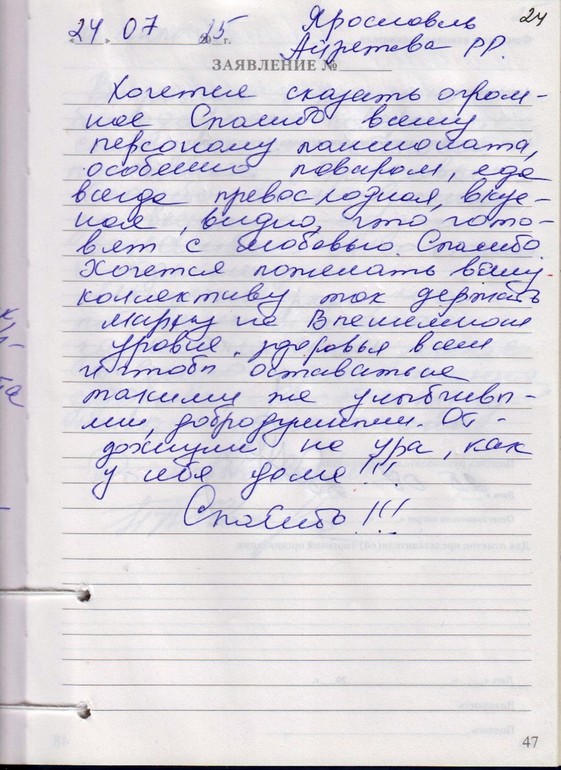 24
24 07 2015 г. Ярославль
Айретова РР.
ЗАЯВЛЕНИЕ №
Хочется сказать огром-
ное Спасибо всему
персоналу пансионата,
особенно поварам, еда
всегда превосходная, вкус-
ная, видно, что гото-
вят с любовью. Спасибо
Хочется пожелать всему
коллективу так держать
марку на Впешемном
уровне, здоровья всем
и чтобы оставаться
такими же улыбчивы-
ми, добродушными. От-
дохнули на ура, как
у себя дома!!!
Спасибо!!!
47